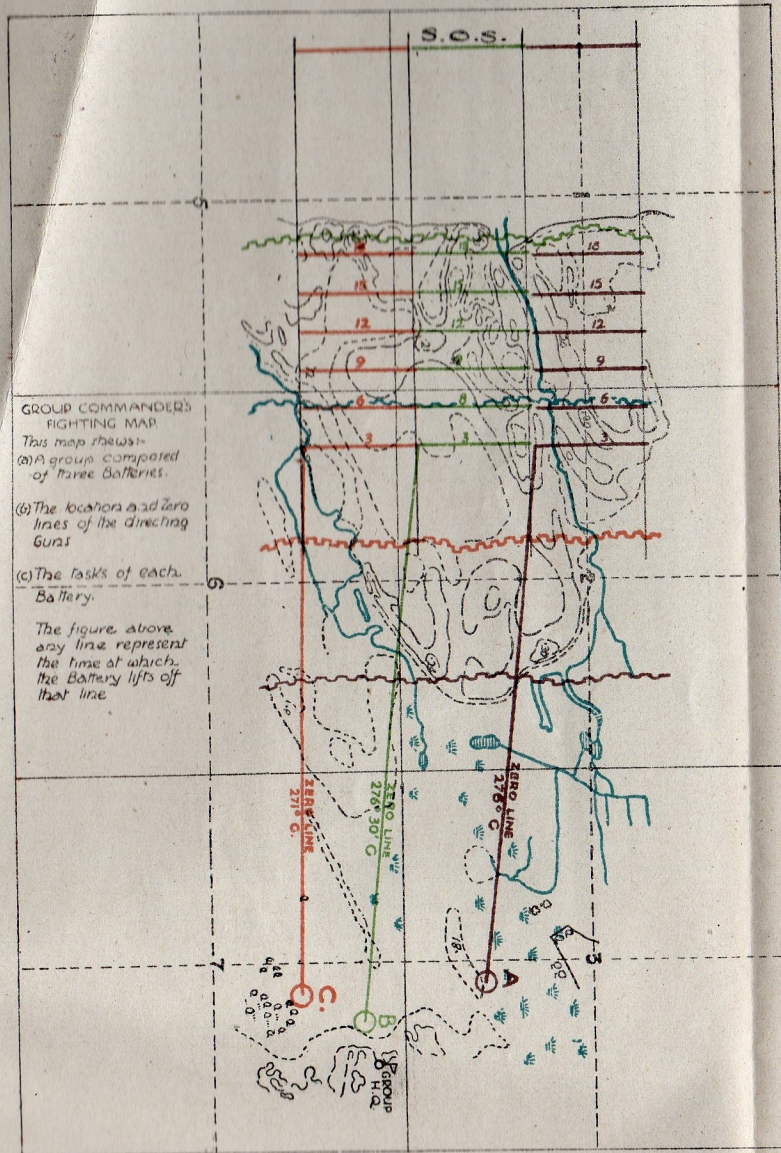 S.O.S.
GROUP COMMANDER'S
FIGHTING MAP
This map shews:-
(a) A group composed
of three Batteries.
(b) The location and Zero
lines of the directing
Guns
(c) The tasks of each
Battery.
The figure above
any line represent
the time at which
the Battery lifts off
that line
5
6
7
1
2
3
18
15
15
12
12
12
9
9
6
8
6
3
3
3
ZERO LINE
271° G.
ZERO LINE
276° 30' G
ZERO LINE
276° G
78
A
B
C.
GROUP
H.Q